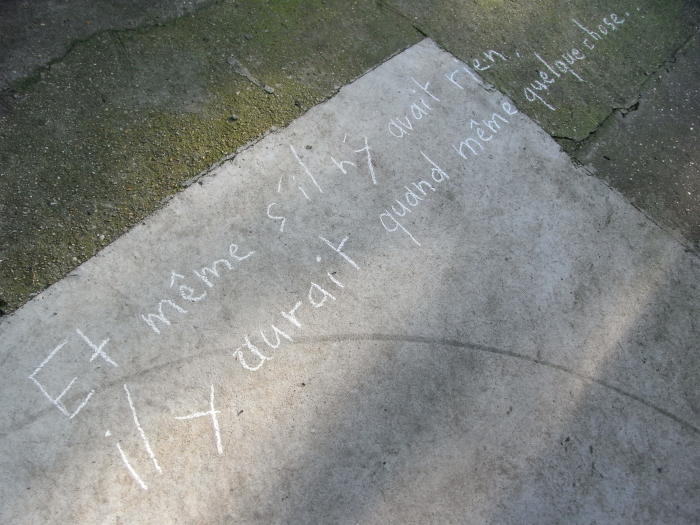 Et même s'il n'y avait rien,
il y aurait quand même quelque chose...